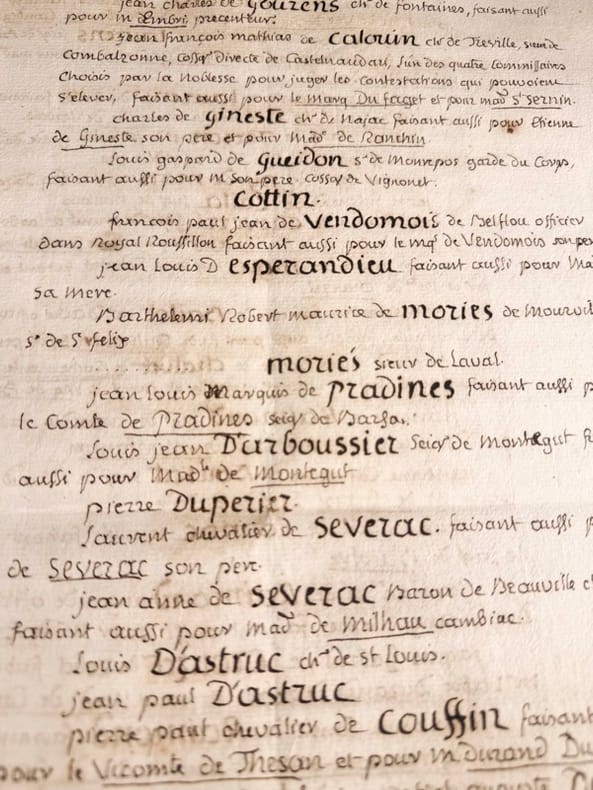 jean charles de Gourens chr de fontaines, faisant aussi
pour m d'embri precenteur.
jean françois mathias de Calouin chr de Treville, sieur de
Combalzonne, cosgr directe de Castelnaudari, l'un des quatre commissaires
choisis par la Noblesse pour juger les contestations qui pouvoient
s'elever, faisant aussi pour le marq Du faget et pour mad St Sernin.
charles de Gineste chr de Najac faisant aussi pour Etienne
de Gineste son pere et pour Mad. de Ranchin
Louis gaspard de Gueidon sr de Monrepos garde du Corps,
faisant aussi pour m son pere cossgr de Vignonet.
Cottin.
françois paul jean de Vendomois de Belflou officier
dans Royal Roussillon faisant aussi pour le mqs de Vendomois son per
jean Louis D'esperandieu faisant aussi pour Ma
sa mere.
Barthelemi Robert maurice de mories de Mourvil
sr de St felix
........ moriés sieur de Laval.
jean louis Marquis de Pradines faisant aussi p
le Comte de Pradines seigr de Barsa
Louis jean D'arboussier Seigr de Montegut f
aussi pour Made de Montegut
pierre Duperier.
Laurent chevalier de Severac. faisant aussi p
de Severac son pere.
jean anne de Severac Baron de Beauville c
faisant aussi pour mad de Milhau cambiac.
Louis D'astruc chr de st Louis.
jean paul D'astruc
pierre paul chevalier de Couffin faisant
pour le Vicomte de Thesan et pour m durand Du